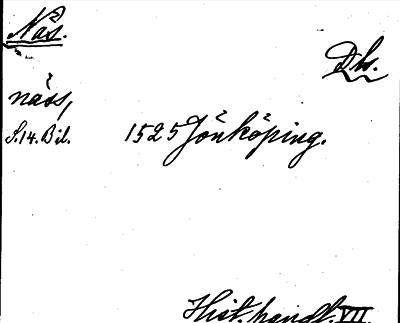 Näs.
Dh.
näss,
S.14. Bil. 1525 Jönköping.
Hist. handl. VII.